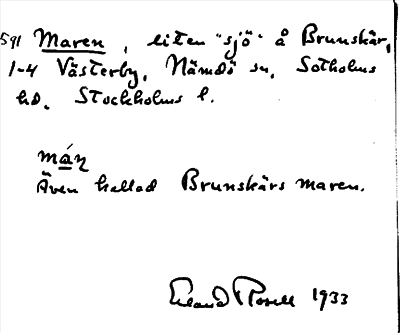 591 Maren, liten "sjö" å Brunskär,
1-4 Västerby, Nämdö sn, Sotholms
hd. Stockholms l.
mán
Även kallad Brunskärs maren.
Erland Rosell 1933